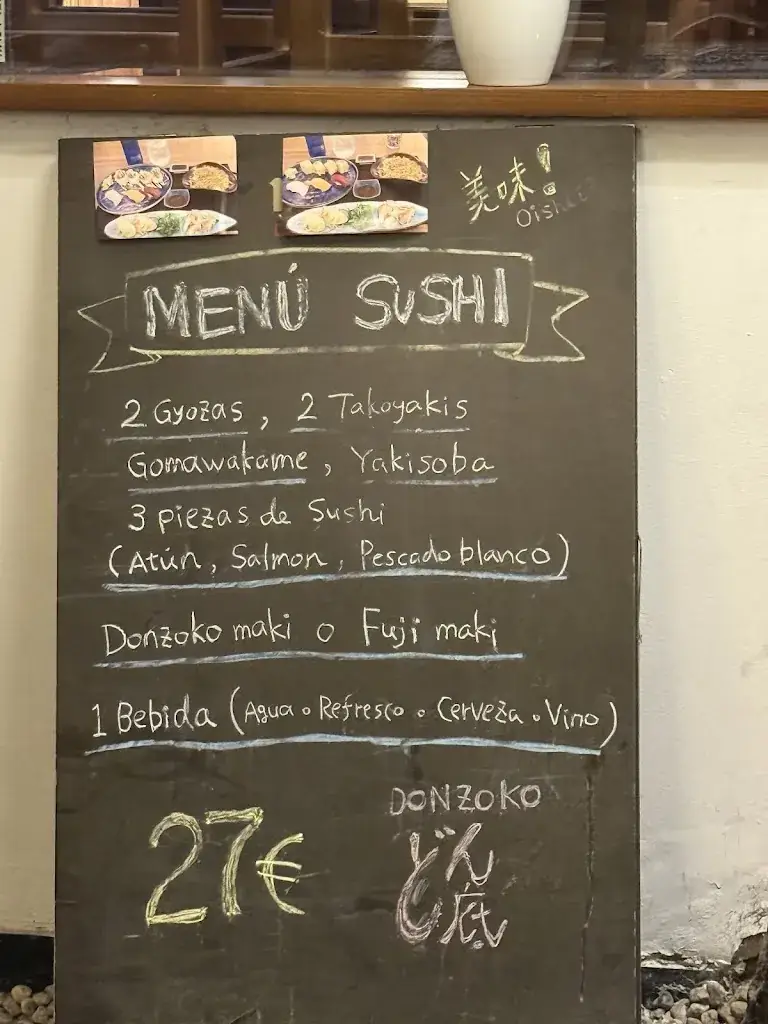 美味!
Oishii
MENÚ SUSHI
2 Gyozas, 2 Takoyakis
Gomawakame, Yakisoba
3 piezas de Sushi
(Atún, Salmon, Pescado blanco)
Donzoko maki o Fuji maki
1 Bebida (Agua o Refresco o Cerveza o Vino)
DONZOKO
27€
どん
底